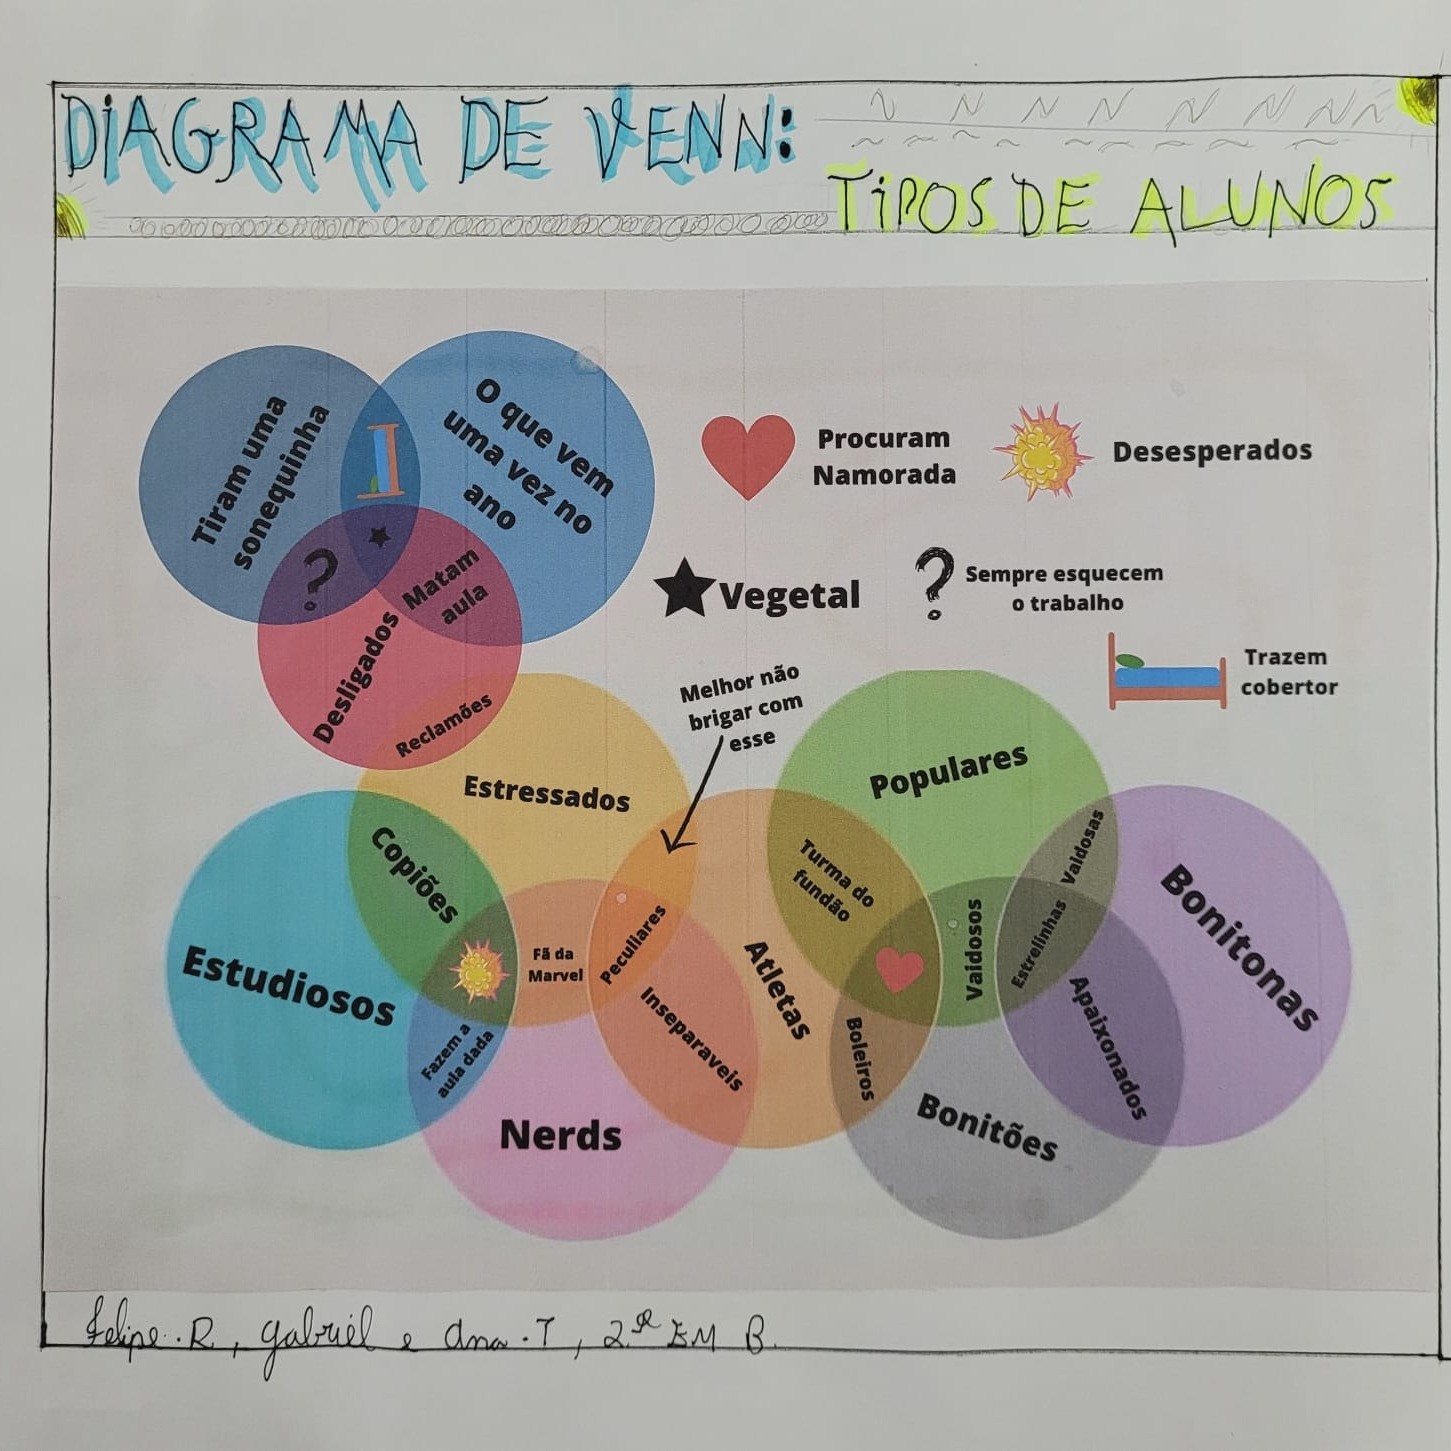 DIAGRAMA DE VENN:
TIPOS DE ALUNOS
Tiram uma
sonequinha
O que vem
uma vez no
ano
Procuram
Namorada
Desesperados
?
Matam
aula
Vegetal
?
Sempre esquecem
o trabalho
Desligados
Reclamões
Trazem
cobertor
Melhor não
brigar com
esse
Estressados
Populares
Copiões
Turma do
fundão
Vaidosas
Bonitonas
Estudiosos
Fã da
Marvel
Peculiares
Atletas
Vaidosos
Estrelinhas
Fazem a
aula dada
Inseparaveis
Boleiros
Apaixonados
Nerds
Bonitões
Felipe. R, Gabriel e Ana. T, 2ª EM B.